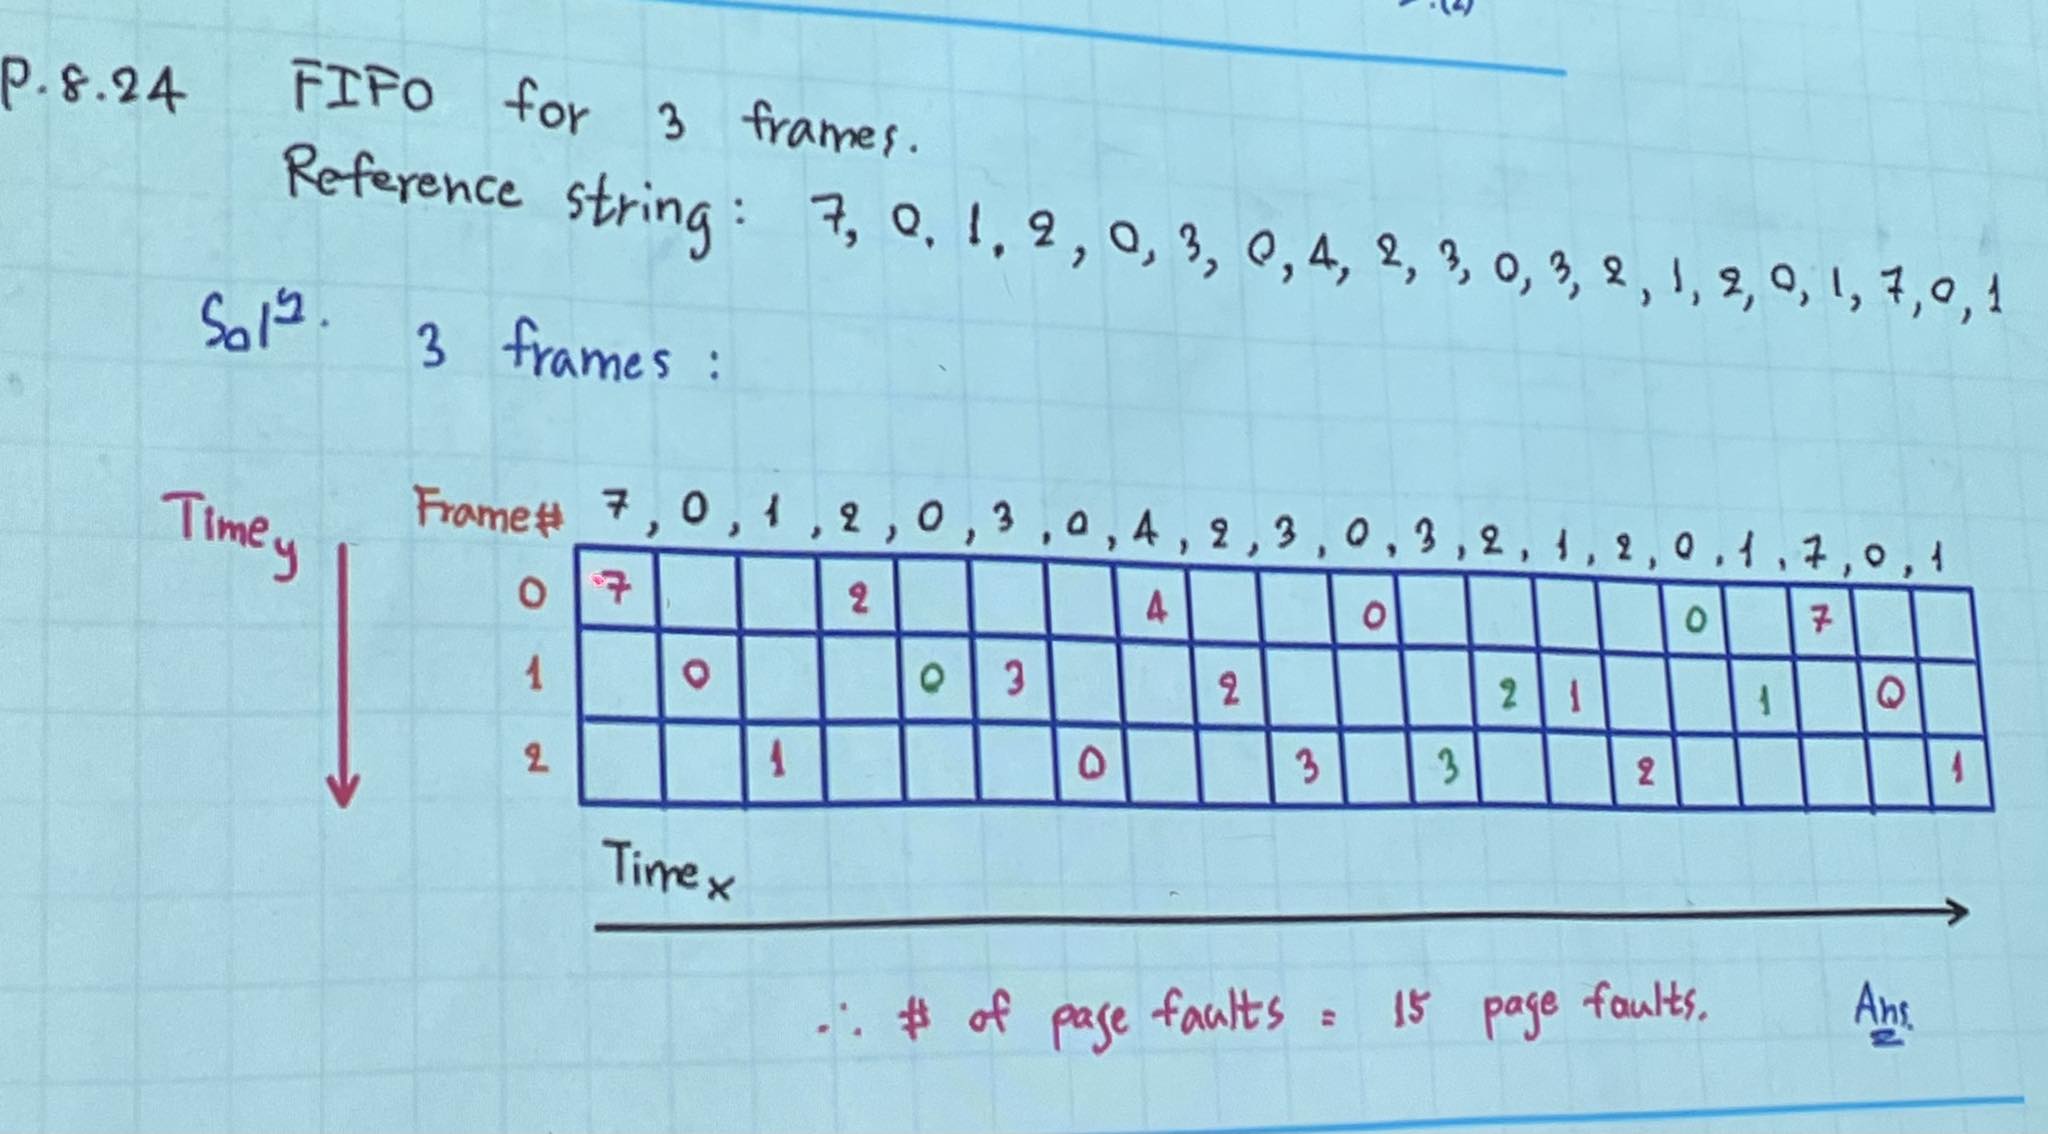 p.8.24 FIFO for 3 frames.
Reference string: 7, 0, 1, 2, 0, 3, 0, 4, 2, 3, 0, 3, 2, 1, 2, 0, 1, 7, 0, 1
Solⁿ. 3 frames :
Frame# 7, 0, 1, 2, 0, 3, 0, 4, 2, 3, 0, 3, 2, 1, 2, 0, 1, 7, 0, 1
Time y
0 7 2 4 0 0 7
1 0 0 3 2 2 1 1 0
2 1 0 3 3 2 1
Time x
∴ # of page faults = 15 page faults. Ans.